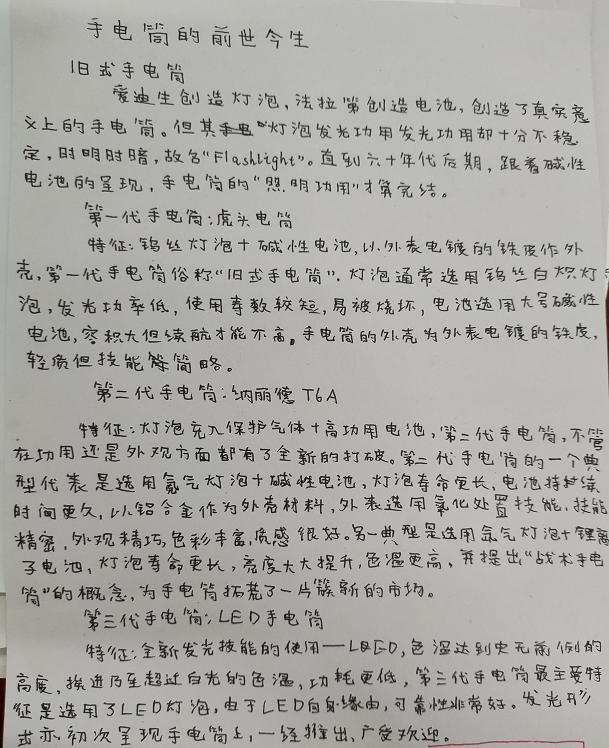 手电筒的前世今生
旧式手电筒
爱迪生创造灯泡，法拉第创造电池，创造了真实意
义上的手电筒。但其灯泡发光功用发光功用却十分不稳
定，时明时暗，故名“Flashlight”。直到六十年代后期，跟着碱性
电池的呈现，手电筒的“照明功用”才算完结。
第一代手电筒：虎头电筒
特征：钨丝灯泡＋碱性电池，以外表电镀的铁皮作外
壳，第一代手电筒俗称“旧式手电筒”。灯泡通常选用钨丝白炽灯
泡，发光功率低，使用寿数较短，易被烧坏，电池选用大号碱性
电池，容积大但续航才能不高。手电筒的外壳为外表电镀的铁皮，
轻质但技能简略。
第二代手电筒：纳丽德T6A
特征：灯泡充入保护气体＋高功用电池，第二代手电筒，不管
在功用还是外观方面都有了全新的打破。第二代手电筒的一个典
型代表是选用氪气灯泡＋碱性电池，灯泡寿命更长，电池持续
时间更久，以铝合金作为外壳材料，外表选用氧化处置技能，技能
精密，外观精巧，色彩丰富，质感很好。另一典型是选用氙气灯泡＋锂离
子电池，灯泡寿命更长，亮度大大提升，色温更高，并提出“战术手电
筒”的概念，为手电筒拓荒了一片簇新的市场。
第三代手电筒：LED手电筒
特征：全新发光技能的使用——LED，色温达到史无前例的
高度，挨进乃至超过白光的色温，功耗更低，第三代手电筒最主要特
征是选用了LED灯泡，由于LED自身缘由，可靠性非常好。发光形
式亦初次呈现手电筒上，一经推出，广受欢迎。